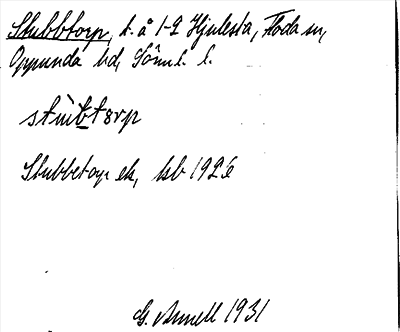 Stubbtorp, t. å 1-2 Hjulesta, Floda sn,
Oppunda hd, Söml. l.
stùbtorp
Stubbetorp ek, kb 1926
G. Annell 1931